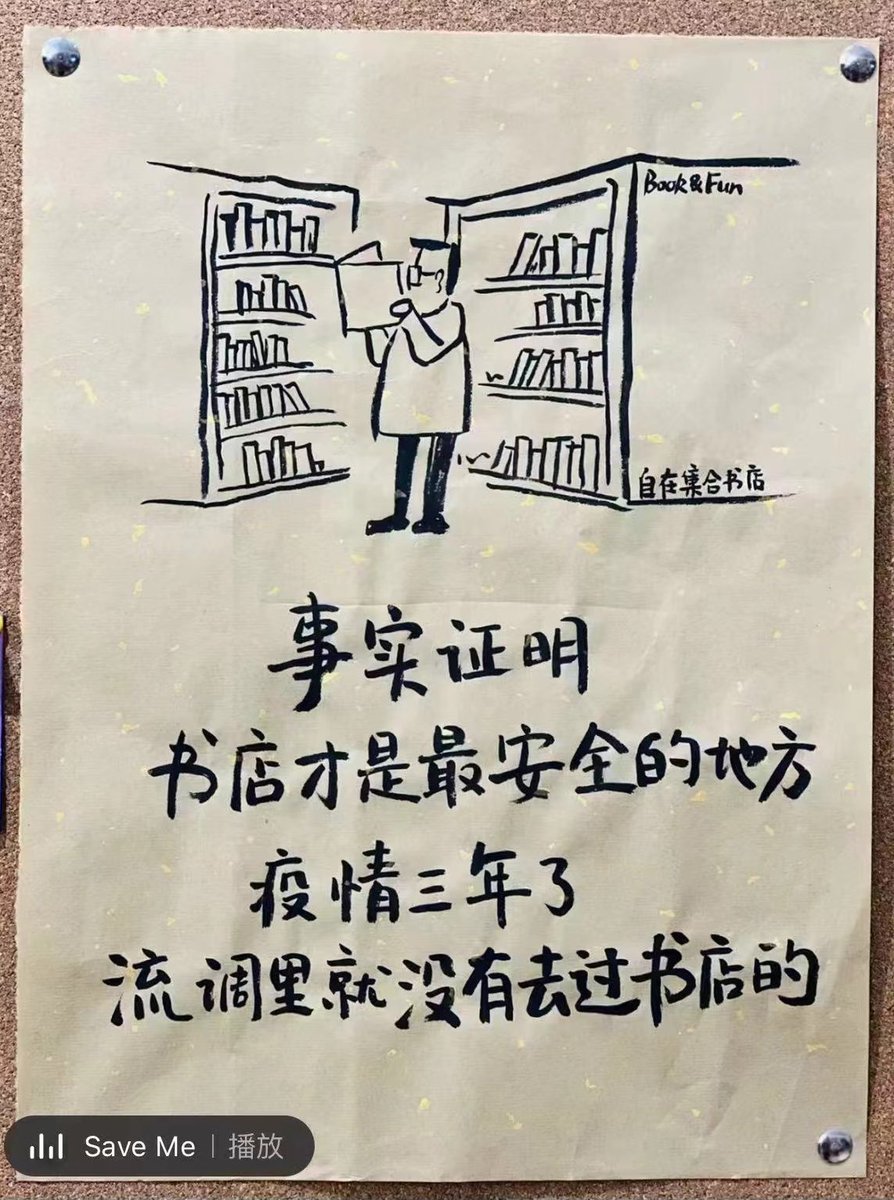 Book&Fun
自在集合书店
事实证明
书店才是最安全的地方
疫情三年了
流调里就没有去过书店的
Save Me | 播放